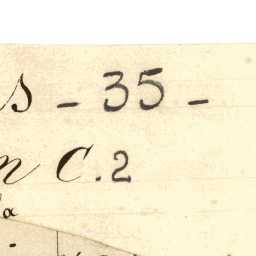 s - 35 -
n C.2
a